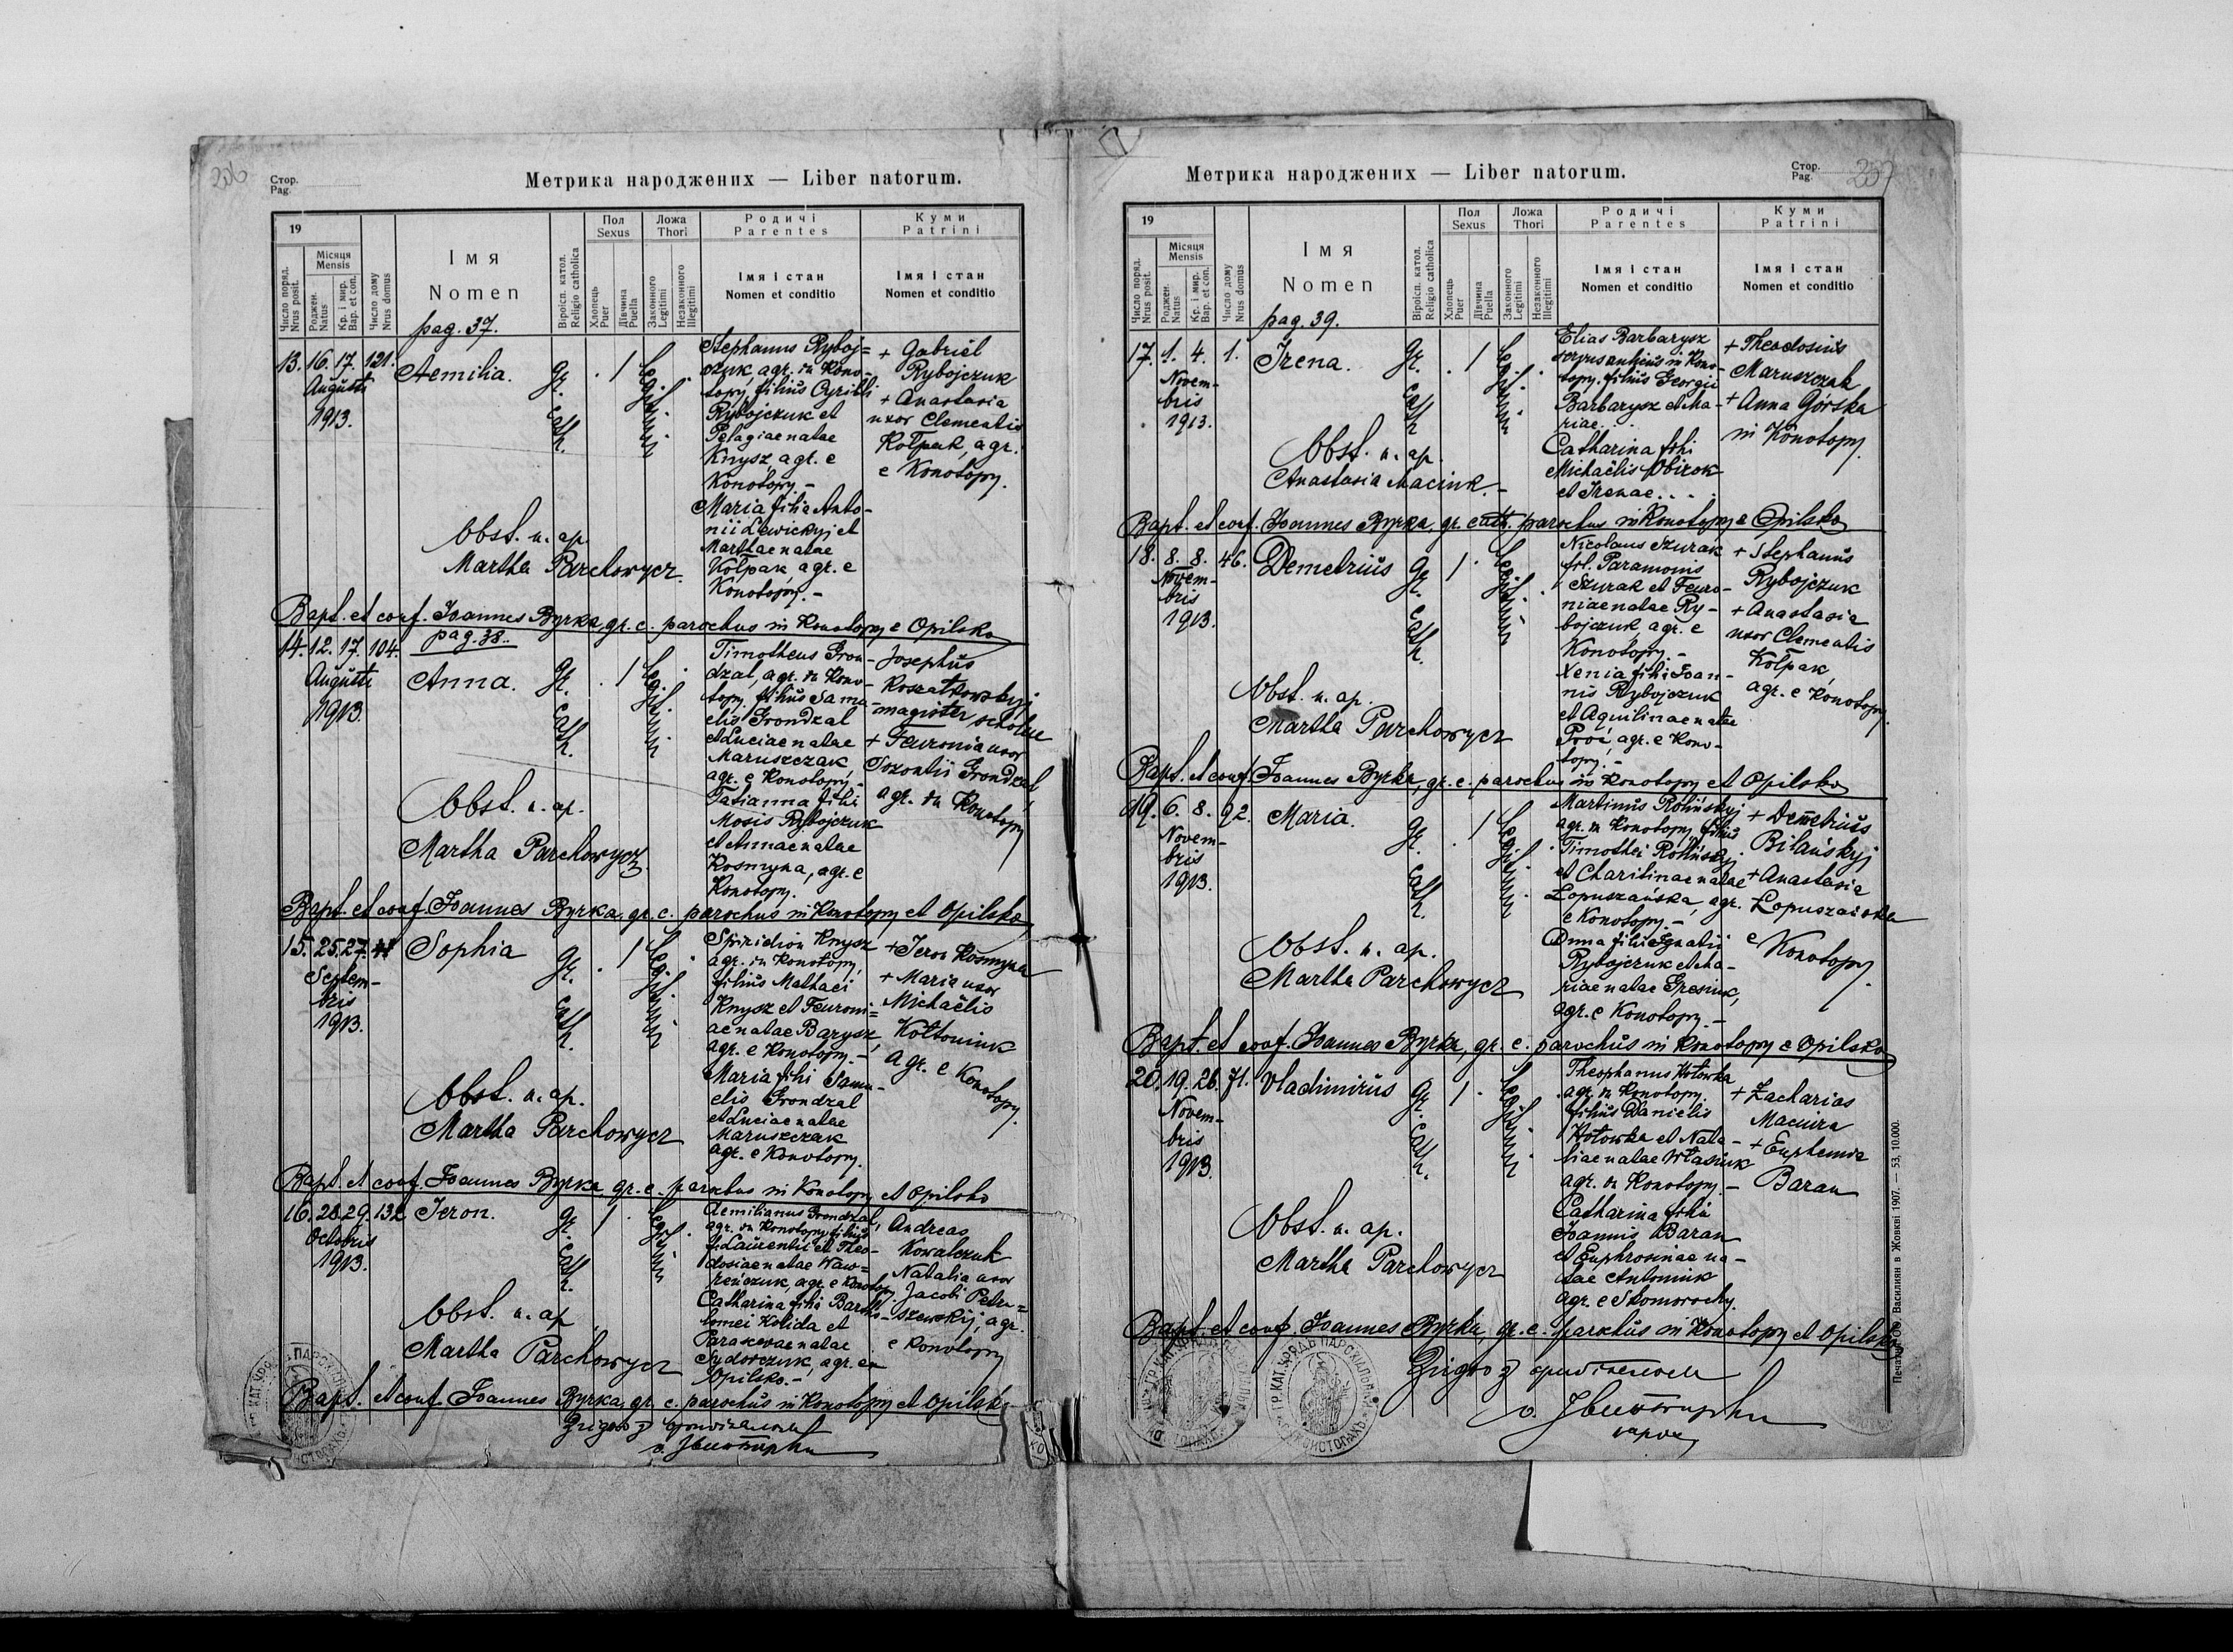 206
Стор.
Pag.
Метрика народжених — Liber natorum.
19
Число поряд.
Nrus posit.
Місяця
Mensis
Роджен.
Natus
Кр. і мир.
Bap. et con.
Число дому
Nrus domus
Імя
Nomen
Віроісп. катол.
Religio catholica
Пол
Sexus
Хлопець
Puer
Дівчина
Puella
Ложа
Thori
Законного
Legitimi
Незаконного
Illegitimi
Родичі
Parentes
Імя і стан
Nomen et conditio
Куми
Patrini
Імя і стан
Nomen et conditio
pag. 37.
13. 16. 17. 121.
Augusti
1913.
Aemilia.
Gr.
Cath.
1
Legitimi
Stephanus Ryboj=
czuk, agr. in Kono-
topy, filius Cyrilli
Rybojczuk et
Pelagiae natae
Knysz, agr. e
Konotopy.-
Maria filia Anto-
nii Lewickyj et
Marthae natae
Kołpak, agr. e
Konotopy.-
+ Gabriel
Rybojczuk
+ Anastasia
uxor Clementis
Kołpak, agr.
e Konotopy.
Obst. n. ap.
Martha Parchowycz.
Bapt. et conf. Joannes Byrka, gr. c. parochus in Konotopy e Opilsko
pag. 38.
14. 12. 17. 104.
Augusti
1913.
Anna.
Gr.
Cath.
1
Legitimi
Timotheus Gron-
dzal, agr. in Kono-
topy, filius Samu-
elis Grondzal
et Luciae natae
Maruszczak
agr. e Konotopy.-
Tatianna fihi
Mosis Rybojczuk
et Annae natae
Kosmyna, agr. e
Konotopy.
Josephus
magister scholae
+ Feuronia uxor
Sozontii Grondzal,
agr. in Konotopy
Obst. n. ap.
Martha Parchowycz.
Bapt. et conf. Joannes Byrka, gr. c. parochus in Konotopy et Opilsko
15. 25. 27.
Septem-
bris
1913.
Sophia
Gr.
Cath.
1
Legitimi
Spiridion Knysz
agr. in Konotopy,
filius Mathaei
Knysz et Feuroni=
ae natae Barysz,
agr. e Konotopy.-
Maria fihi Samu-
elis Grondzal
et Luciae natae
Maruszczak
agr. e Konotopy.
+ Jeron Kosmyna
+ Maria uxor
Michaëlis
Kołtoniuk
agr. e Konotopy.
Obst. n. ap.
Martha Parchowycz
Bapt. et conf. Joannes Byrka, gr. c. parochus in Konotopy et Opilsko
16. 28. 29. 132
Octobris
1913.
Jeron.
Gr.
Cath.
1
Legitimi
Aemilianus Grondzal,
agr. in Konotopy, filius
Laurentii et Theo-
dosiae natae Waw=
reńczuk, agr. e Konotopy.
Catharina fihi Bartho-
lomei Holida et
Parascevae natae
Sydorczuk, agr. ex
Opilsko.-
Andreas
Kowalczuk
Natalia uxor
Jacobi Petru=
szewskij, agr.
e Konotopy
Obst. n. ap.
Martha Parchowycz
Bapt. et conf. Joannes Byrka, gr. c. parochus in Konotopy et Opilsko
Стор.
Pag.
207
Метрика народжених — Liber natorum.
19
Число поряд.
Nrus posit.
Місяця
Mensis
Роджен.
Natus
Кр. і мир.
Bap. et con.
Число дому
Nrus domus
Імя
Nomen
Віроісп. катол.
Religio catholica
Пол
Sexus
Хлопець
Puer
Дівчина
Puella
Ложа
Thori
Законного
Legitimi
Незаконного
Illegitimi
Родичі
Parentes
Імя і стан
Nomen et conditio
Куми
Patrini
Імя і стан
Nomen et conditio
pag. 39.
17. 1. 4. 1.
Novem-
bris
1913.
Irena.
Gr.
Cath
1
Legitimi
Elias Barbarysz
in Kono-
topy, filius Georgii
Barbarysz et Ma-
riae...
Catharina fihi
Michaëlis Obirok
et Irenae....
+ Theodosius
Maruszczak
+ Anna Górska
in Konotopy.
Obst. n. ap.
Anastasia Maciuk.-
Bapt. et conf. Joannes Byrka, gr. cath. parochus in Konotopy e Opilsko
18. 8. 8. 46.
Novem-
bris
1913.
Demetrius
Gr.
Cath.
1
Legitimi
Nicolaus Szurak
fil. Paramonis
Szurak et Feuro-
niae natae Ry-
bojczuk, agr. e
Konotopy.-
Xenia fihi Joan-
nis Rybojczuk
et Aquilinae natae
Proć, agr. e Kono-
topy.-
+ Stephanus
Rybojczuk
+ Anastasia
uxor Clementis
Kołpak,
agr. e Konotopy.
Obst. n. ap.
Martha Parchowycz
Bapt. et conf. Joannes Byrka, gr. c. parochus in Konotopy et Opilsko
19. 6. 8. 92.
Novem-
bris
1913.
Maria.
Gr.
Cath.
1
Legitimi
Martinus Rolińskyj
agr. in Konotopy, filius
Timothei Rolińskyj
et Charitinae natae
Łopuszańska, agr.
e Konotopy.-
Anna fihi Ignatii
Rybojczuk et Ma-
riae natae Gresiuk,
agr. e Konotopy.-
+ Demetrius
Bilańskyj
+ Anastasia
Łopuszańska
e Konotopy.
Obst. n. ap.
Martha Parchowycz
Bapt. et conf. Joannes Byrka, gr. c. parochus in Konotopy e Opilsko
20. 19. 26. 71.
Novem-
bris
1913.
Vladimirus
Gr.
Cath.
1
Legitimi
Theophanus Hołowka
agr. in Konotopy.
filius Danielis
Hołowka et Nata-
liae natae Własiuk
agr. in Konotopy.-
Catharina fihi
Joannis Baran
et Euphrosinae na-
tae Antoniuk
agr. e Skomorochy.
+ Zacharias
Maciura
+ Euphemia
Baran
Obst. n. ap.
Martha Parchowycz
Bapt. et conf. Joannes Byrka, gr. c. parochus in Konotopy et Opilsko
Василиян в Жовкві 1907. — 53, 10.000.